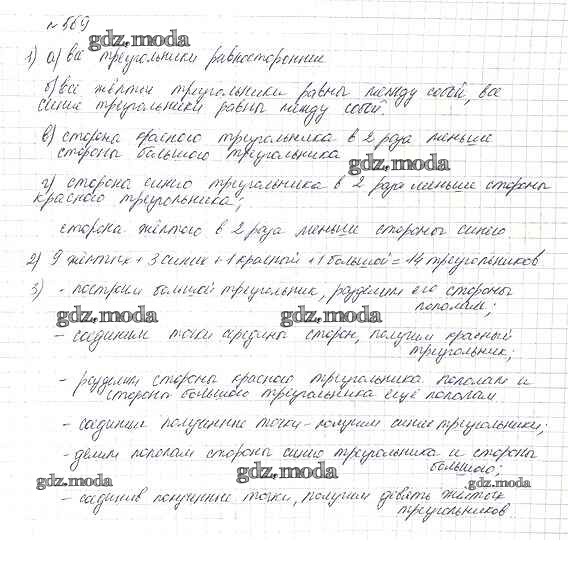 № 569
gdz.moda
1) а) все треугольники равносторонние
б) все жёлтые треугольники равны между собой, все
синие треугольники равны между собой.
в) сторона красного треугольника в 2 раза меньше
стороны большого треугольника
gdz.moda
г) сторона синего треугольника в 2 раза меньше стороны
красного треугольника;
сторона жёлтого в 2 раза меньше стороны синего
2) 9 жёлтых + 3 синих + 1 красный + 1 большой = 14 треугольников
3) - построим большой треугольник, разделим его стороны
пополам;
gdz.moda gdz.moda
- соединим точки середины сторон, получим красный
треугольник;
- разделим стороны красного треугольника пополам и
стороны большого треугольника ещё пополам.
- соединим полученные точки - получим синие треугольники;
- делим пополам стороны синего треугольника и стороны
большого;
gdz.moda gdz.moda gdz.moda
- соединив полученные точки, получим девять жёлтых
треугольников